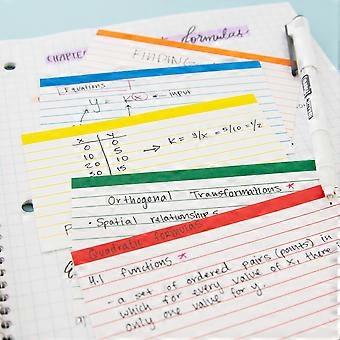 CHAPTER formulas
FINDING
Equations
y = k(x) ← input
x y
0 0
10 5
20 10
30 15
→ k = y/x = 5/10 = 1/2
Orthogonal Transformations *
• Spatial relationships
Quadratic formulas
4.1 functions *
- a set of ordered pairs (points) in
which for every value of x, there i
only one value for y.